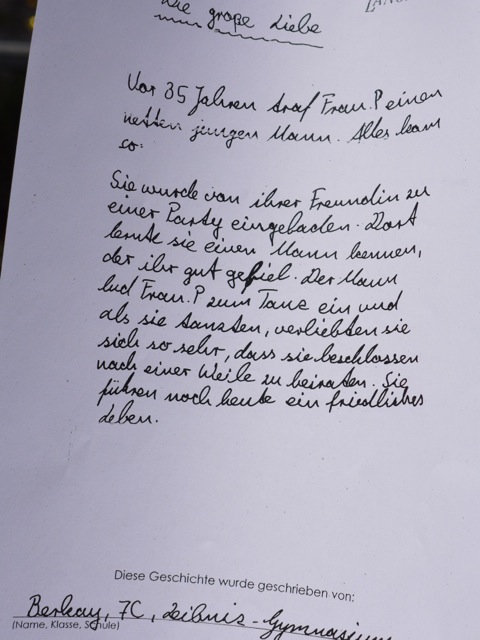 Die große Liebe
Vor 35 Jahren traf Frau.P einen
netten jungen Mann. Alles kam
so:
Sie wurde von ihrer Freundin zu
einer Party eingeladen. Dort
lernte sie einen Mann kennen,
der ihr gut gefiel. Der Mann
lud Frau.P zum Tanz ein und
als sie tanzten, verliebten sie
sich so sehr, dass sie beschlossen
nach einer Weile zu heiraten. Sie
führen noch heute ein friedliches
Leben.
Diese Geschichte wurde geschrieben von:
Berkay, 7C, Leibniz-Gymnasium
(Name, Klasse, Schule)